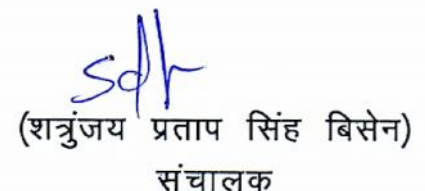 sdr
(शत्रुंजय प्रताप सिंह बिसेन)
संचालक